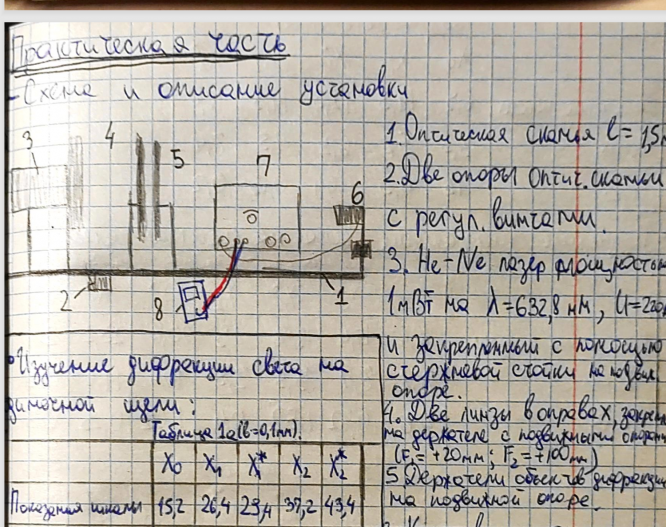 Практическая часть
- Схема и описание установки
3
4
5
7
6
2
8
1
1. Оптическая скамья l = 1,5
2. Две опоры оптич. скамьи
с регул. винтами.
3. He-Ne лазер мощностью
1мВт на λ=632,8 нм, U=220
и закрепленный с помощью
стержневой стойки на подвиж.
опоре.
4. Две линзы в оправах, закреп
на держателе с подвижными опорами
(F₁=+20мм; F₂=+100мм)
5. Держатели объектов дифракции
на подвижной опоре.
• Изучение дифракции света на
одиночной щели:
Таблица 1а (b=0,1мм).
X₀ X₁ X₁* X₂ X₂*
Показания шкалы 15,2 26,4 29,4 37,2 43,4